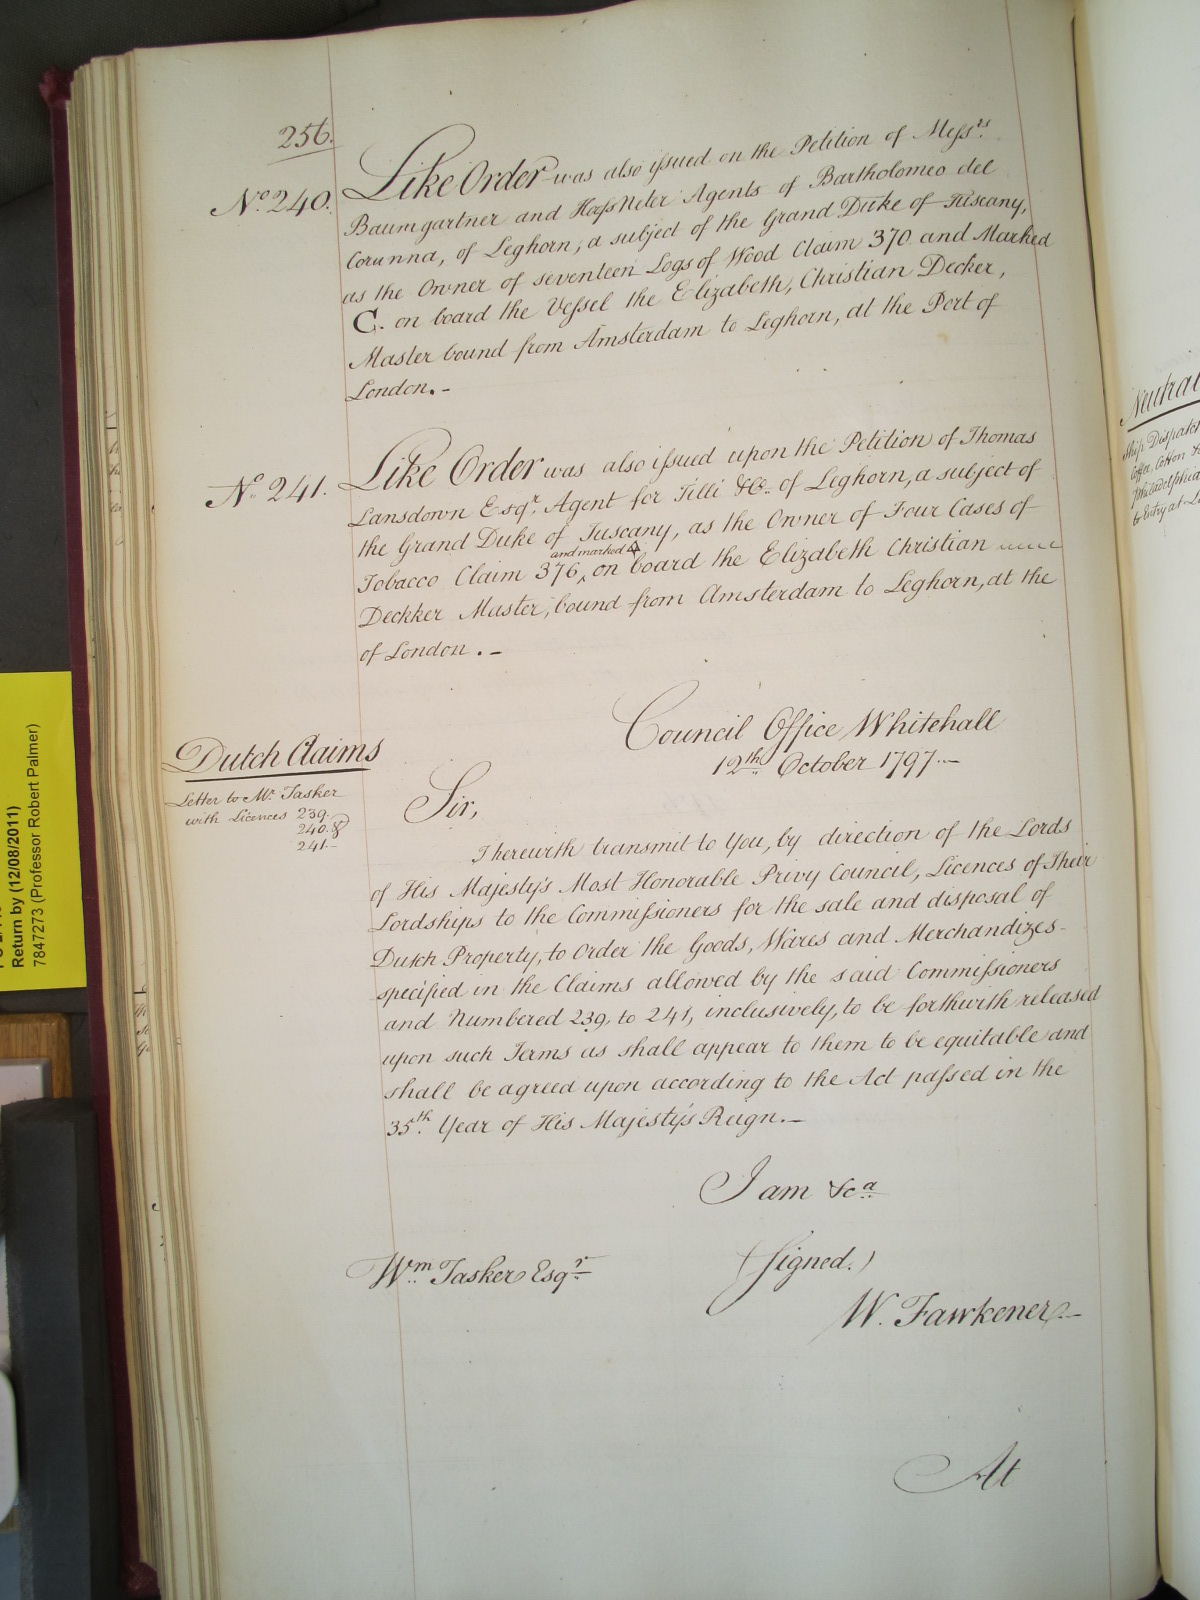 256.
No. 240. Like Order was also issued on the Petition of Messrs.
Baumgartner and Hoffsteter Agents of Bartholomeo del
Corunna, of Leghorn, a subject of the Grand Duke of Tuscany,
as the Owner of seventeen Logs of Wood Claim 370 and Marked
C. on board the Vessel the Elizabeth, Christian Decker,
Master bound from Amsterdam to Leghorn, at the Port of
London.-
No. 241. Like Order was also issued upon the Petition of Thomas
Lansdown Esqr. Agent for Tilli &Co. of Leghorn, a subject of
the Grand Duke of Tuscany, as the Owner of Four Cases of
and marked
Tobacco Claim 376, on board the Elizabeth Christian
Deckker Master, bound from Amsterdam to Leghorn, at the
of London.-
Council Office Whitehall
12th October 1797.-
Dutch Claims
Letter to Mr. Tasker
with Licences 239.
240. &
241.-
Sir,
I herewith transmit to You, by direction of the Lords
of His Majesty's Most Honorable Privy Council, Licences of Their
Lordships to the Commissioners for the sale and disposal of
Dutch Property, to Order the Goods, Wares and Merchandizes-
specified in the Claims allowed by the said Commissioners
and Numbered 239, to 241, inclusively, to be forthwith released
upon such Terms as shall appear to them to be equitable and
shall be agreed upon according to the Act passed in the
35th. Year of His Majesty's Reign.-
I am &ca
Wm. Tasker Esqr.
(Signed.)
W. Fawkener-
At
Return by (12/08/2011)
7847273 (Professor Robert Palmer)
Neutral
Ship Dispatch
Coffee, Cotton &
Philadelphia
to Entry at L